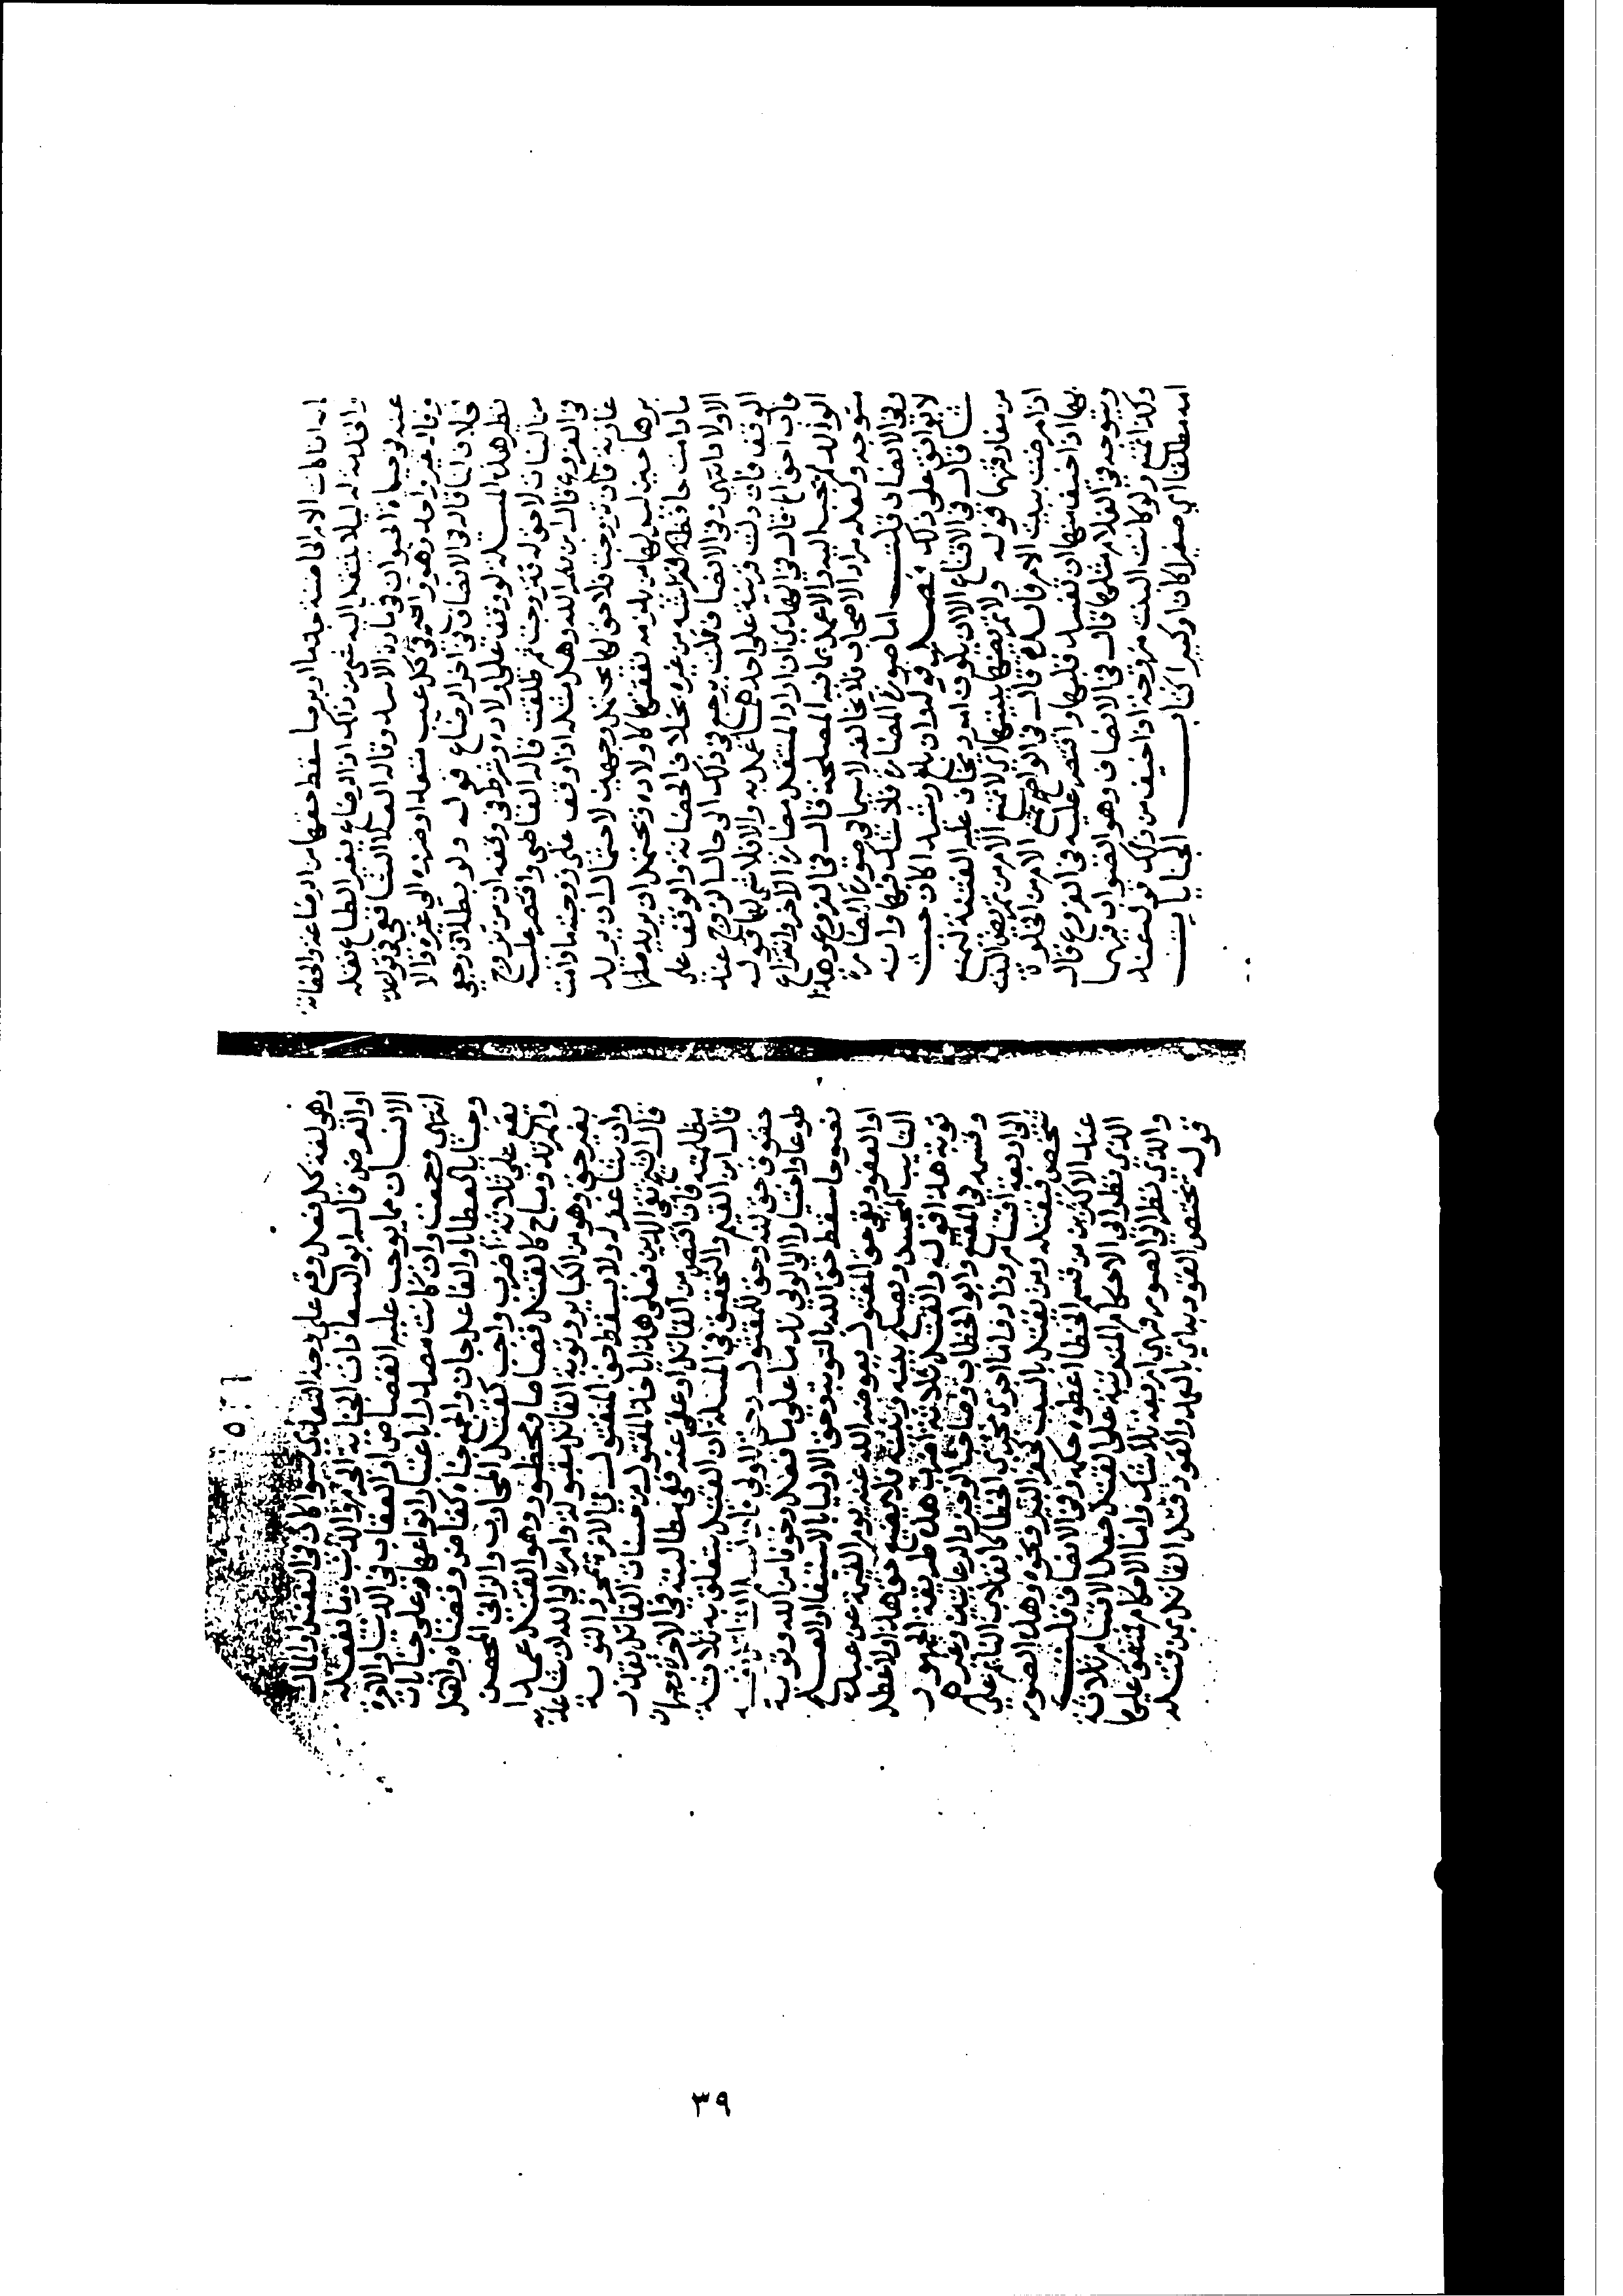 ان كانت الام الحاضنة سقط حقها من الرضاعة والحضانة
ليلا ينتقل اليه شي من ذلك بغير الطباع نقله
عنه في حياة الحيوان في مادة الاسد وقاله الشافعي في قوله
وقال غير واحد وهو اوجه في كل عيب متعد او ضرره الى غيره والا
فلا قال في الانصاف في اخر الرضاع قوله ولو بطلاق رجعي
نظير هذه المسئلة لو وقف على اولاده وشرط في وقفه ان من تزوج
من البنات لا حق له فتزوجت ثم طلقت قاله القاضي واقتصر عليه
في الفروع قاله بن نصر الله وهل مثله اذا وقف على زوجته ما دامت
عازبة فان تزوجت فلا حق لها يحتمل وجهين لاحتمال ان يريد
برها حين ليس لها من يلزمه نفقتها كاولاده ويحتمل ان يريد صلتها
ما دامت حافظة لحرمته من غيره بخلاف الحضانة والوقف على
الاولاد انتهى وفي الانصاف قلت يرجع في ذلك الى حال الزوج عند
الوقف فان دلت قرينة على احدهما عمل به والا فلا شي لها قوله
فاب احق الخ قال في الهدي ان اراد المنتقل مضارة الاخر وانتزاع
الولد لم يجب اليه والا عمل بما فيه المصلحة قال في الفروع وهذا
متوجه ولعله مراد الاصحاب فلا مخالفة لا سيما في صورة المضارة
وفي الانصاف قلت اما صورة المضارة فلا شك فيها وانه
لا يوافق على ذلك فصل قوله وان بلغ رشيدا كان حيث
شا قال في الاقناع الا ان يكون امرد يخاف عليه الفتنة فيمنع
من مفارقتهما قوله ولا تمريضها ببيتها اي لا تمنع الام من تمريض البنت
اذا مرضت ببيت الام قال في الواضح تمنع الام من الخلوة
بها اذا خيف منها ان تفسد قلبها واقتصر عليه في الفروع قال
ويتوجه في الغلام مثلها قال في الانصاف وهو الصواب فيهما
وكذا تمنع ولو كانت البنت مزوجة اذا خيف من ذلك قوله عند
امه مطلقا اي صغيرا كان او كبيرا كتاب الجنايات
وهو لغة كل فعل وقع على وجه التعدي سوا كان في النفس او المال
او العرض قاله ابو السعادات الجناية الجرم والذنب وما يفعله
الانسان مما يوجب عليه القصاص او العقاب في الدنيا والاخرة
انتهى وجمعت وان كانت مصدرا باعتبار انواعها على جنايات
وجنايا كعطايا والفاعل جان والجمع جناة كقاض وقضاة والقتل
يقع على ثلاثة اضرب واجب كقتل المحارب والزاني المحصن
والمرتد ومباح كالقتل قصاصا ومحظور وهو القتل عمدا
بغير حق وهو من الكباير وتوبة القاتل مقبولة وامره الى الله ان شا عذبه
وان شا غفر له ولا يسقط حق المقتول في الاخرة بمجرد التوبة
قال الشيخ تقي الدين فعلى هذا ياخذ المقتول من حسنات القاتل بقدر
مظلمته فان اقتص من القاتل او عفي عنه ففي مطالبته في الاخرة وجهان
قال ابن القيم والتحقيق في المسئلة ان القتل يتعلق به ثلاثة
حقوق حق لله وحق للمقتول وحق للولي فاذا نفسه
طوعا واختيارا الى الولي ندما على ما فعل وخوفا من الله وتوبة
نصوحا سقط حق الله بالتوبة وحق الاوليا بالاستيفا او الصلح
او العفو وبقي حق المقتول يعوضه الله عنه يوم القيمة عن عبده
التايب المحسن ويصلح بينه وبينه فلا يضيع حق هذا ولا تبطل
توبة هذا قوله والقتل ثلاثة اضرب هذه طريقة الجمهور
وقسمه في المقنع وابو الخطاب وصاحب الوجيز والرعايتين وغيرهم
الى اربعة اقسام وزادوا ما اجري مجرى الخطا كانقلاب النايم على
شخص فيقتله ومن يقتل بالسبب كحفر البير ونحوه وهذه الصور
عند الاكثرين من قسم الخطا اعطوه حكمه وفي الانصاف قلت
الذي نظر الى الاحكام المترتبة على القتل جعل الاقسام ثلاثة
والذي نظر الى الصور فهي اربعة بلا شك واما الاحكام فمتفق عليها
قوله يختص القود به اي بالعمد والقود قتل القاتل بمن قتله
٣٩